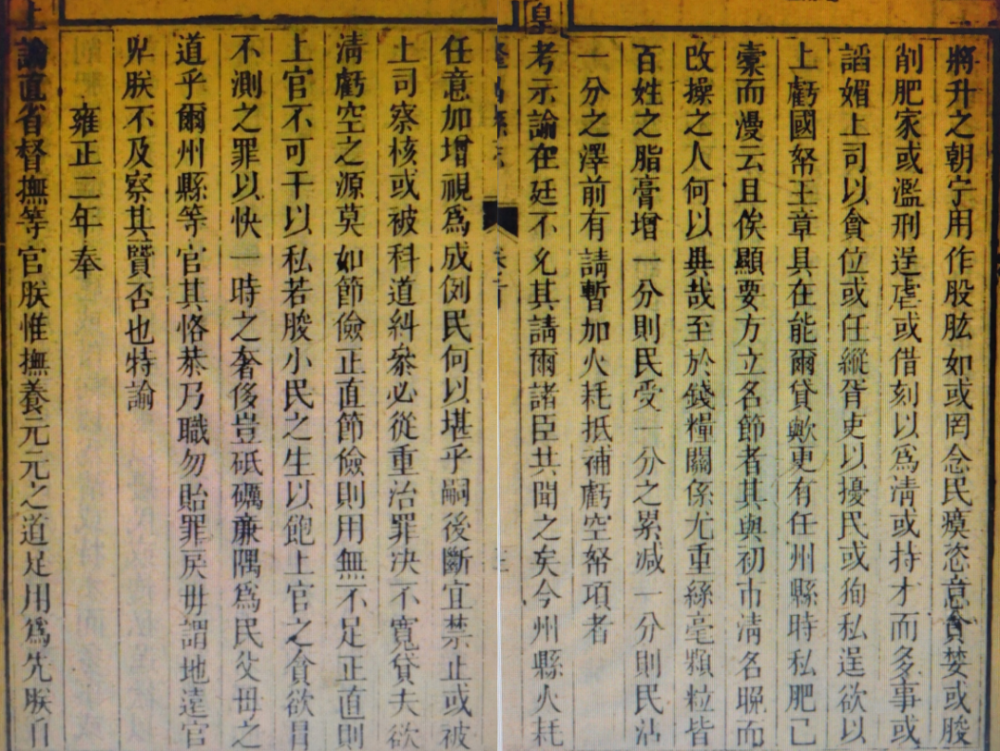 將升之朝宁用作股肱如或罔念民瘼恣意貪婪或朘
削肥家或濫刑逞虐或借刻以為淸或持才而多事或
謟媚上司以貪位或任縱胥吏以擾民或狥私逞欲以
上虧國帑王章具在能爾貸歟更有任州縣時私肥己
橐而漫云且俟顯要方立名節者其與初市淸名晚而
改操之人何以異哉至於錢糧關係尤重絲毫顆粒皆
百姓之脂膏增一分則民受一分之累减一分則民沾
一分之澤前有請暫加火耗抵補虧空帑項者
皇考示諭在廷不允其請爾諸臣共聞之矣今州縣火耗
任意加增視爲成例民何以堪乎嗣後斷宜禁止或被
上司察核或被科道糾叅必從重治罪决不寬貸夫欲
淸虧空之源莫如節儉正直節儉則用無不足正直則
上官不可干以私若朘小民之生以飽上官之貪欲冒
不測之罪以快一時之奢侈豈砥礪亷隅爲民父母之
道乎爾州縣等官其恪恭乃職勿貽罪戾毋謂地遠官
卑朕不及察其賢否也特諭
雍正二年奉
上諭直省督撫等官朕惟撫養元元之道足用爲先朕自